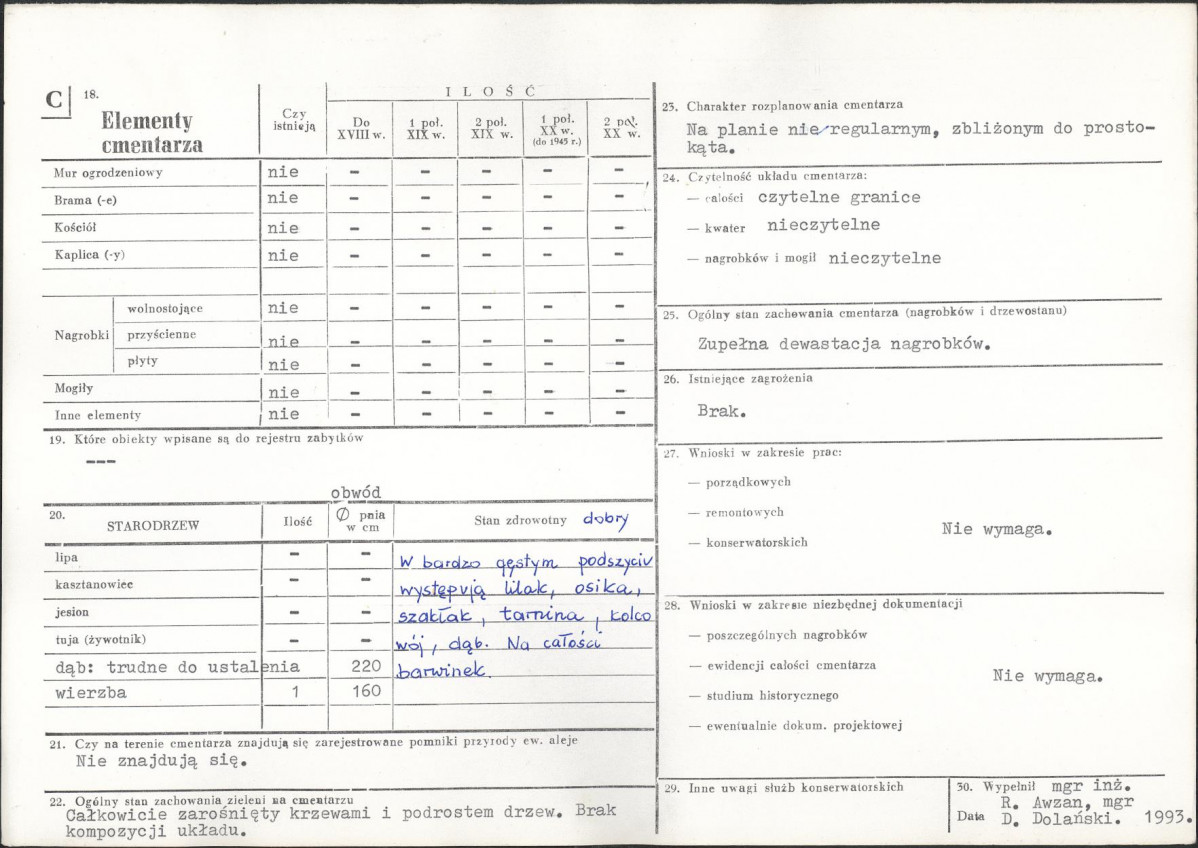 C
18.
Elementy
cmentarza
Czy
istnieją
ILOŚĆ
Do
XVIII w.
1 poł.
XIX w.
2 poł.
XIX w.
1 poł.
XX w.
(do 1945 r.)
2 poł.
XX w.
Mur ogrodzeniowy nie - - - - -
Brama (-e) nie - - - - -
Kościół nie - - - - -
Kaplica (-y) nie - - - - -
Nagrobki
wolnostojące nie - - - - -
przyścienne nie - - - - -
płyty nie - - - - -
Mogiły nie - - - - -
Inne elementy nie - - - - -
19. Które obiekty wpisane są do rejestru zabytków
---
obwód
20. STARODRZEW
Ilość
Ø pnia
w cm
Stan zdrowotny dobry
lipa - -
kasztanowiec - -
jesion - -
tuja (żywotnik) - -
dąb: trudne do ustalenia 220
wierzba 1 160
W bardzo gęstym podszyciu
występują lilak, osika,
szakłak, tarnina, kolco
wój, dąb. Na całości
barwinek.
21. Czy na terenie cmentarza znajdują się zarejestrowane pomniki przyrody ew. aleje
Nie znajdują się.
22. Ogólny stan zachowania zieleni na cmentarzu
Całkowicie zarośnięty krzewami i podrostem drzew. Brak
kompozycji układu.
23. Charakter rozplanowania cmentarza
Na planie nieregularnym, zbliżonym do prosto-
kąta.
24. Czytelność układu cmentarza:
— całości czytelne granice
— kwater nieczytelne
— nagrobków i mogił nieczytelne
25. Ogólny stan zachowania cmentarza (nagrobków i drzewostanu)
Zupełna dewastacja nagrobków.
26. Istniejące zagrożenia
Brak.
27. Wnioski w zakresie prac:
— porządkowych
— remontowych
— konserwatorskich
Nie wymaga.
28. Wnioski w zakresie niezbędnej dokumentacji
— poszczególnych nagrobków
— ewidencji całości cmentarza
— studium historycznego
— ewentualnie dokum. projektowej
Nie wymaga.
29. Inne uwagi służb konserwatorskich
30. Wypełnił mgr inż.
R. Awzan, mgr
Data D. Dolański. 1993.